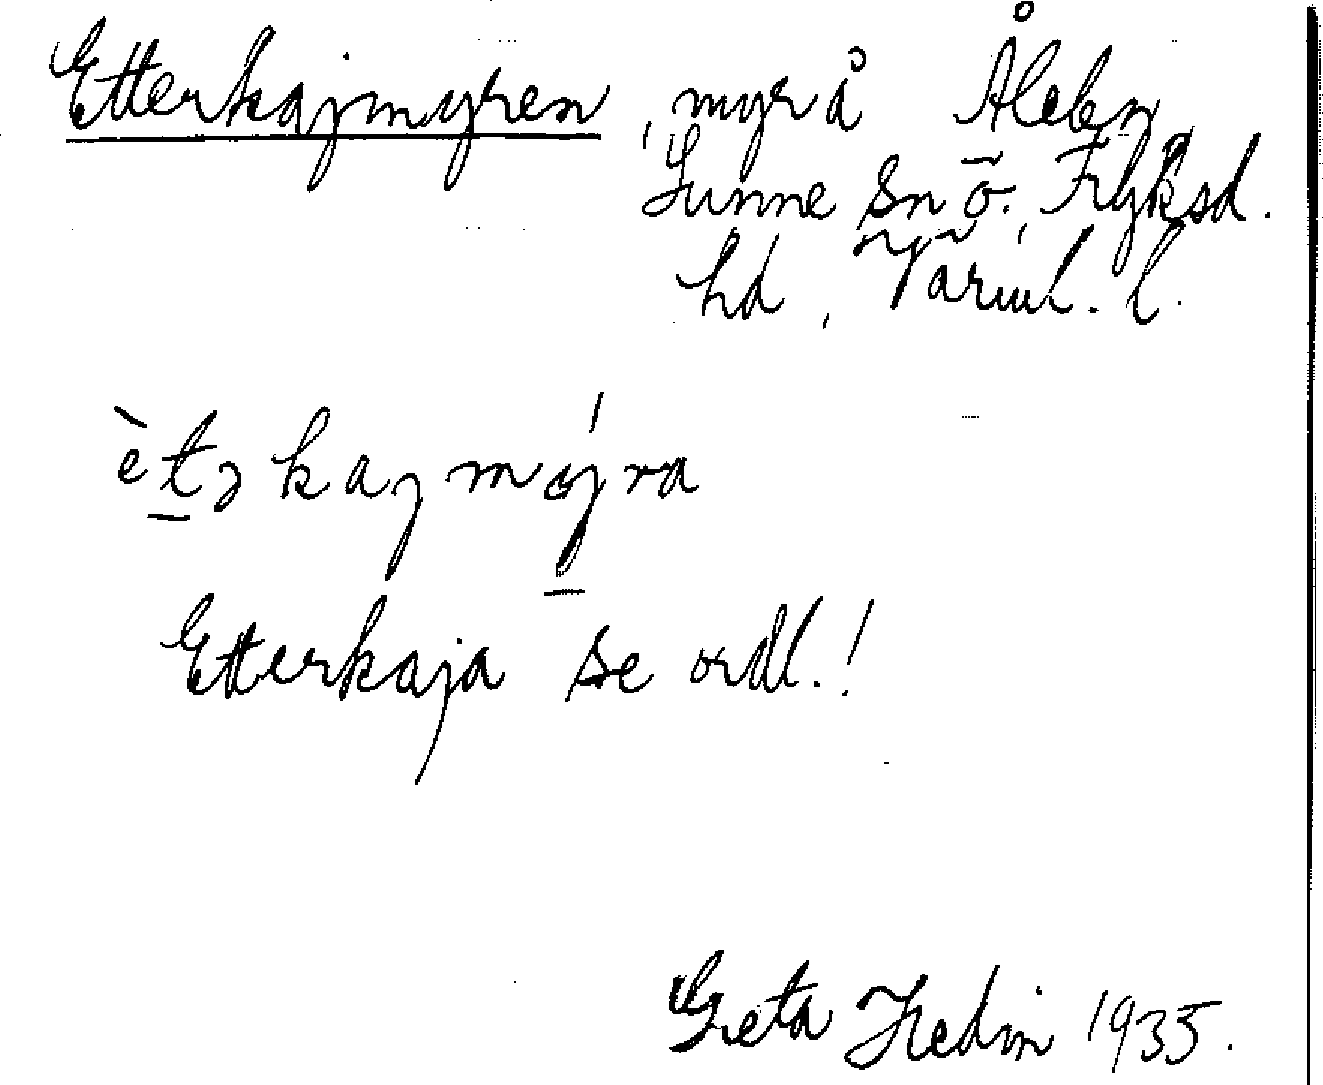 Etterkajmyren, myr å Åleby,
Sunne sn ö., Fryksd.
hd, Värml. l.
ètəkajmýra
Etterkaja se ordl.!
Greta Hedin 1935.